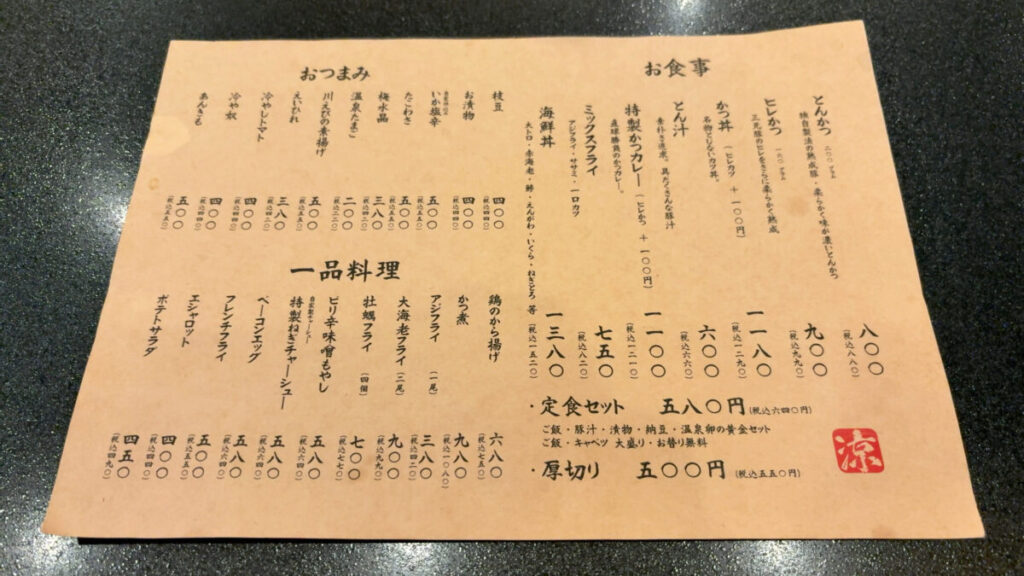 お食事
とんかつ 二〇〇グラム 八〇〇
独自製法の熟成豚・柔らかく味が濃いとんかつ (税込八八〇)
ヒレかつ 一六〇グラム 九〇〇
三元豚のヒレをさらに柔らかく熟成 (税込九九〇)
かつ丼 (ヒレカツ+一〇〇円) 一一八〇
名物とじないカツ丼。 (税込一二九〇)
とん汁 六〇〇
素朴な逸品。具だくさんな豚汁 (税込六六〇)
特製かつカレー (ヒレかつ+一〇〇円) 一一〇〇
直球勝負のかつカレー。 (税込一二一〇)
ミックスフライ 七五〇
アジフライ・ササミ・一口カツ (税込八二〇)
海鮮丼 一三八〇
大トロ・赤海老・鯵・えんがわ・いくら・ねぎとろ 等 (税込一五二〇)
・定食セット 五八〇円 (税込六四〇円)
ご飯・豚汁・漬物・納豆・温泉卵の黄金セット
ご飯・キャベツ 大盛り・お替り無料
・厚切り 五〇〇円 (税込五五〇円)
涼
おつまみ
枝豆 四〇〇 (税込四四〇)
お漬物 四〇〇 (税込四四〇)
いか塩辛 五〇〇 (税込五五〇)
たこわさ 五〇〇 (税込五五〇)
梅水晶 三八〇 (税込四二〇)
温泉たまご 二〇〇 (税込二二〇)
川えびの素揚げ 五〇〇 (税込五五〇)
えいひれ 三八〇 (税込四二〇)
冷やしトマト 四〇〇 (税込四四〇)
冷や奴 四〇〇 (税込四四〇)
あんきも 五〇〇 (税込五五〇)
一品料理
鶏のから揚げ 六八〇 (税込七五〇)
かつ煮 九八〇 (税込一〇八〇)
アジフライ (一尾) 三八〇 (税込四二〇)
大海老フライ (二尾) 九〇〇 (税込九九〇)
牡蠣フライ (四個) 七〇〇 (税込七七〇)
ピリ辛味噌もやし 五八〇 (税込六四〇)
自家製チャーシュー
特製ねぎチャーシュー 五八〇 (税込六四〇)
ベーコンエッグ 五八〇 (税込六四〇)
フレンチフライ 五〇〇 (税込五五〇)
エシャロット 四〇〇 (税込四四〇)
ポテトサラダ 四五〇 (税込四九〇)